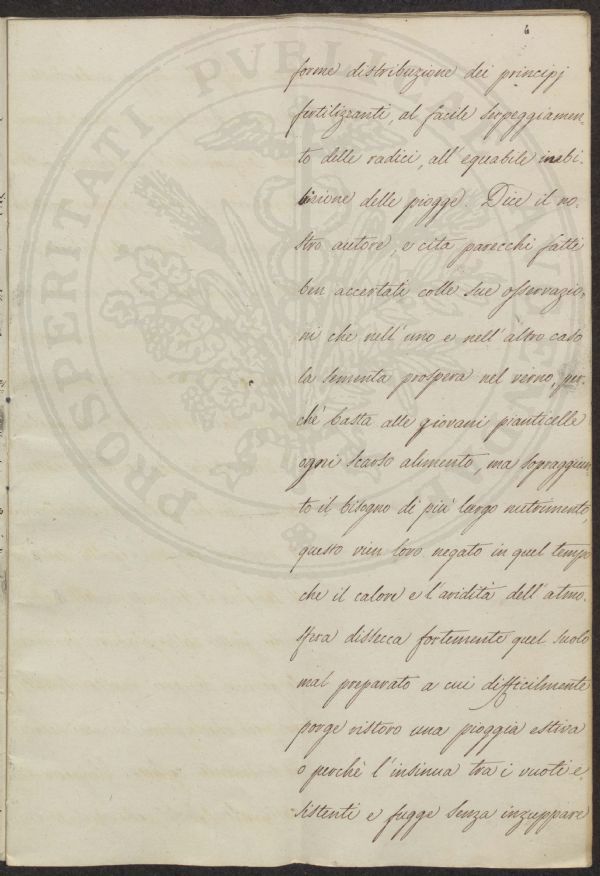 6
forme distribuzione dei principj
fertilizzanti, al facile serpeggiamen-
to delle radici, all'equabile imbi-
bizione delle piogge. Dice il no-
stro autore, e cita parecchi fatti
ben accertati colle sue osservazio-
ni che nell'uno e nell'altro caso
la sementa prospera nel verno, per-
chè basta alle giovani pianticelle
ogni scarso alimento, ma sopraggiun-
to il bisogno di più largo nutrimento,
questo vien loro negato in quel tempo
che il calore e l'aridità dell'atmo-
sfera dissecca fortemente quel suolo
mal preparato a cui difficilmente
porge ristoro una pioggia estiva
o perchè l'insinua tra i vuoti e-
sistenti e fugge senza inzuppare
PROSPERITATI PVBLICAE